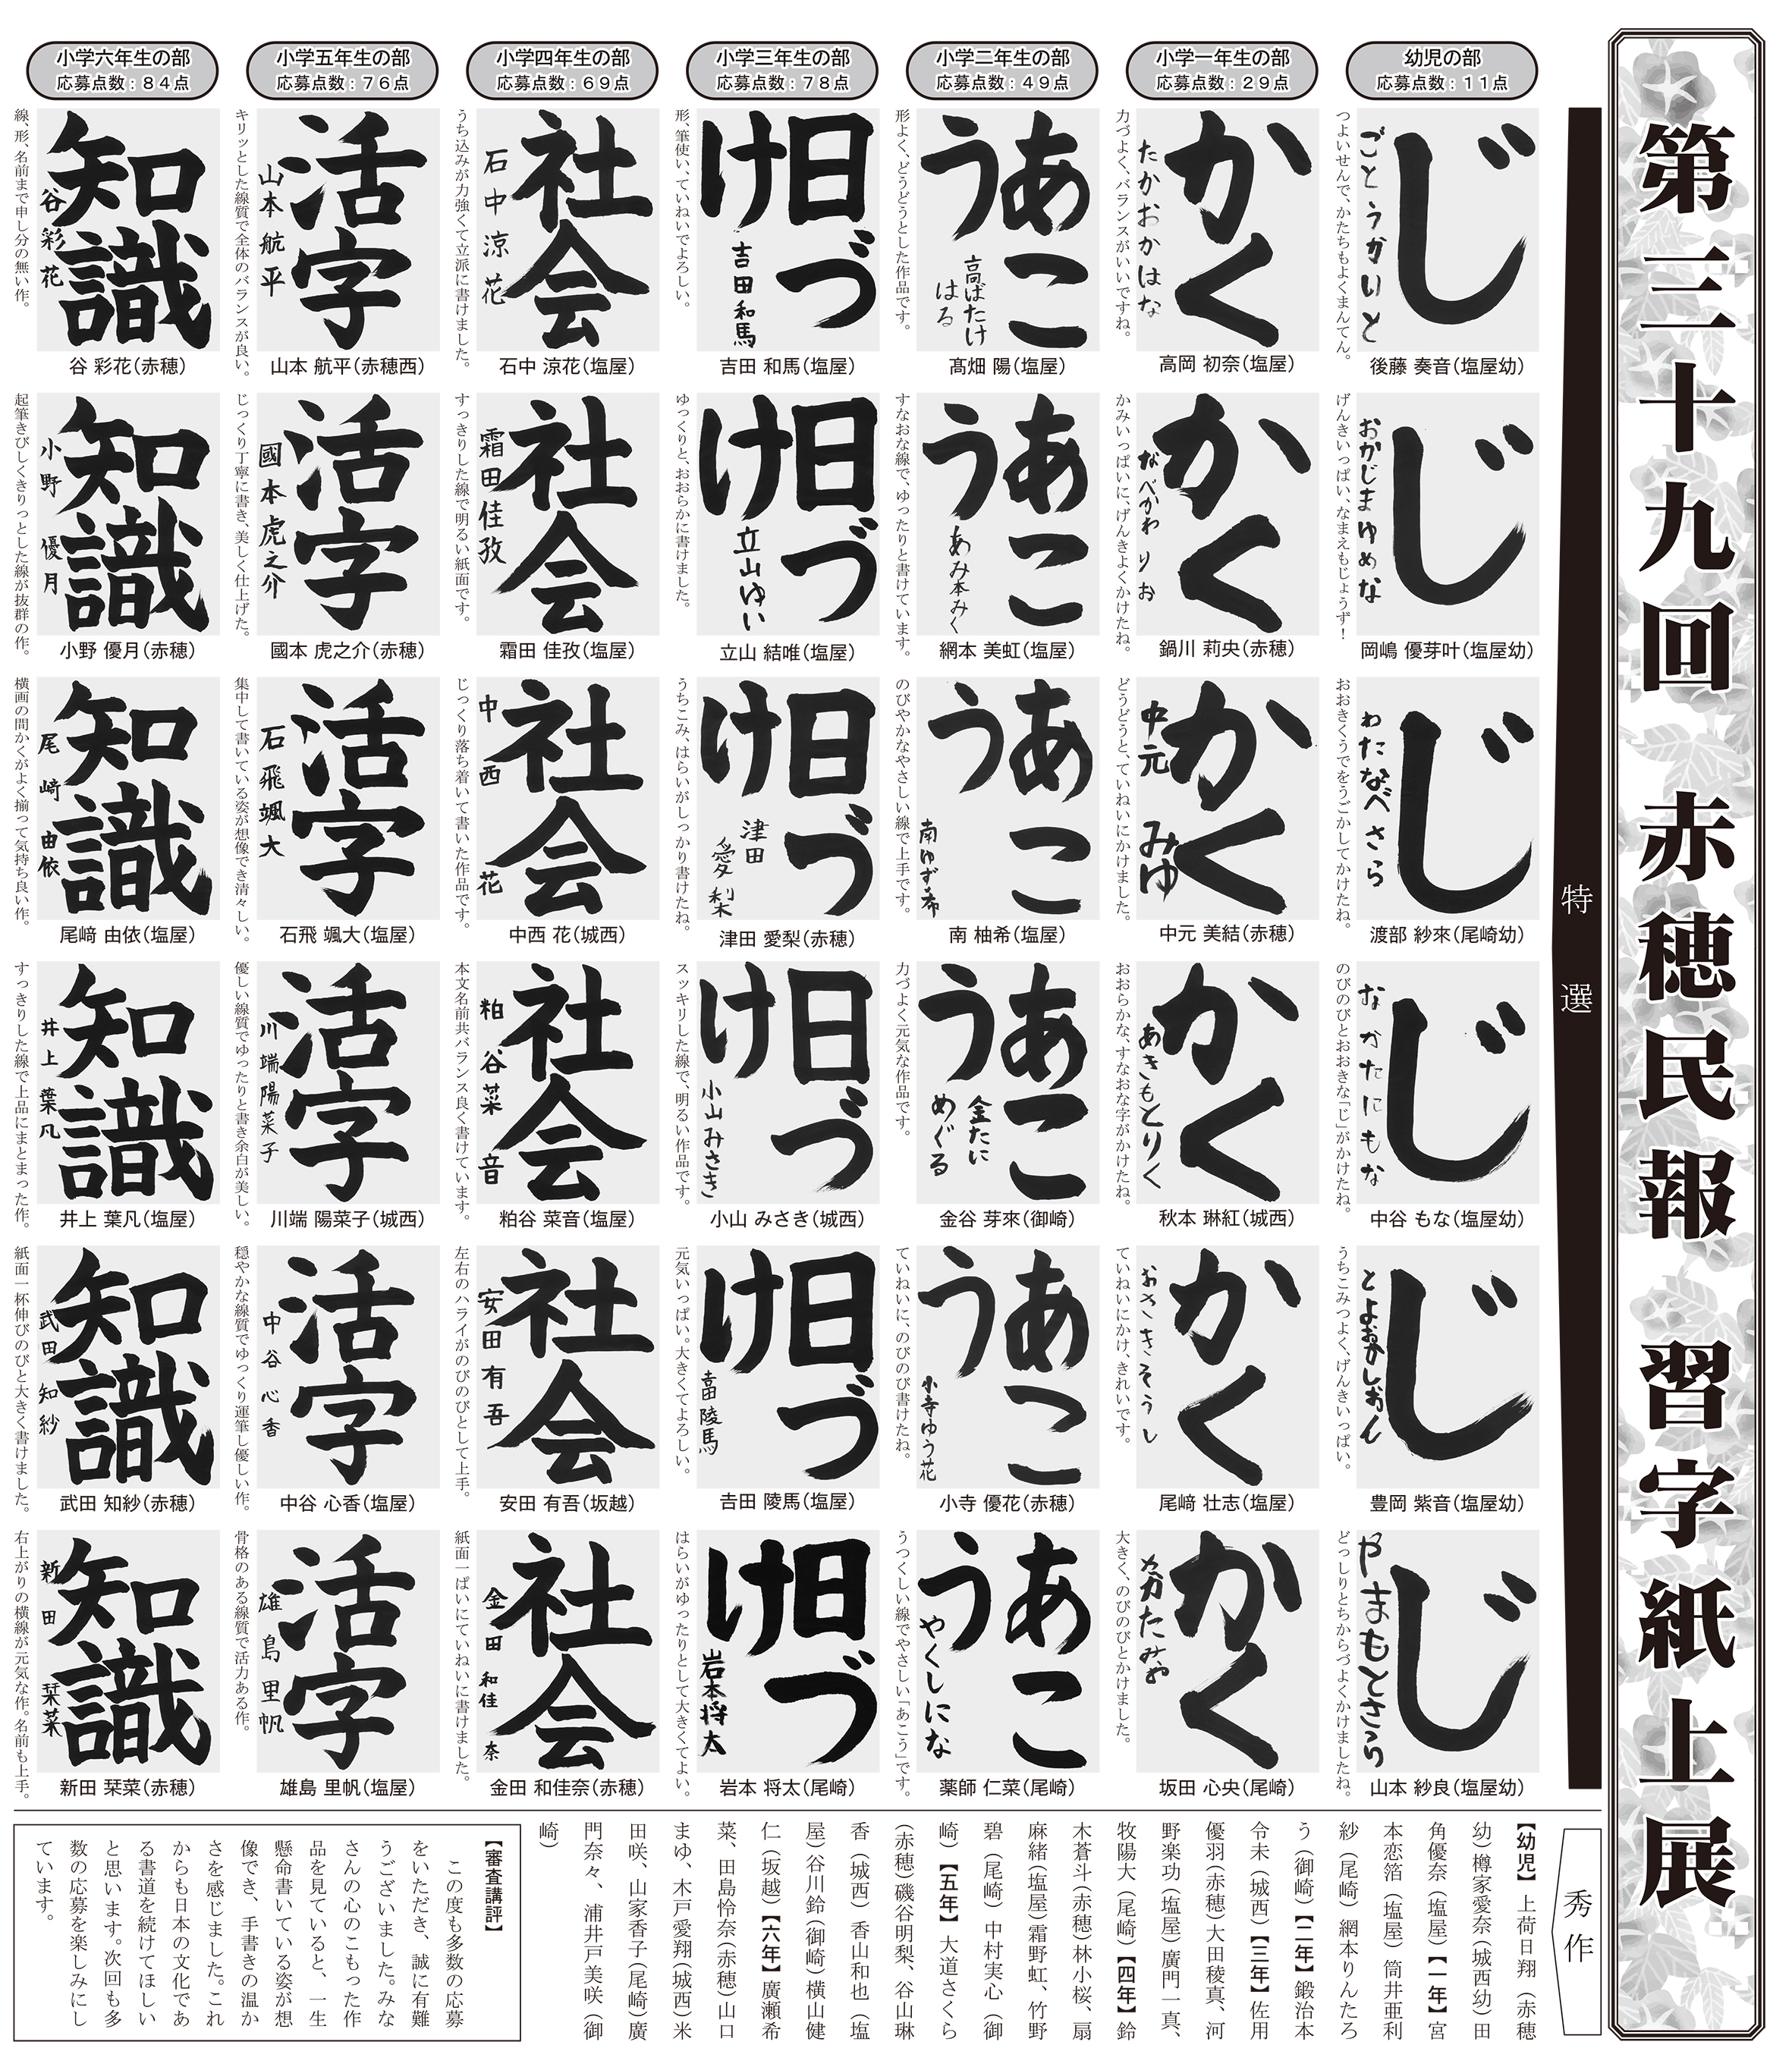 第三十九回 赤穂民報 習字紙上展
特選
幼児の部
応募点数：11点
じ
ごとうかいと
つよいせんで、かたちもよくまんてん。
後藤 奏音（塩屋幼）
じ
おかじまゆめな
げんきいっぱい、なまえもじょうず！
岡嶋 優芽叶（塩屋幼）
じ
わたなべさら
おおきくうでをうごかしてかけたね。
渡部 紗來（尾崎幼）
じ
なかたにもな
のびのびとおおきな「じ」がかけたね。
中谷 もな（塩屋幼）
じ
とよおかしおん
うちこみつよく、げんきいっぱい。
豊岡 紫音（塩屋幼）
じ
やまもとさら
どっしりとちからづよくかけましたね。
山本 紗良（塩屋幼）
小学一年生の部
応募点数：29点
かく
たかおかはな
力づよく、バランスがいいですね。
高岡 初奈（塩屋）
かく
なべかわりお
かみいっぱいに、げんきよくかけたね。
鍋川 莉央（赤穂）
かく
中元みゆ
どうどうと、ていねいにかけました。
中元 美結（赤穂）
かく
あきもとりく
おおらかな、すなおな字がかけたね。
秋本 琳紅（城西）
かく
おさきそうし
ていねいにかけ、きれいです。
尾﨑 壮志（塩屋）
かく
大きく、のびのびとかけました。
坂田 心央（尾崎）
小学二年生の部
応募点数：49点
あこ
う
高ばたけ
はる
形よく、どうどうとした作品です。
髙畑 陽（塩屋）
あこ
う
あみ本みく
すなおな線で、ゆったりと書けています。
網本 美虹（塩屋）
あこ
う
南ゆず希
のびやかなやさしい線で上手です。
南 柚希（塩屋）
あこ
う
金たに
めぐる
力づよく元気な作品です。
金谷 芽來（御崎）
あこ
う
小寺ゆう花
ていねいに、のびのび書けたね。
小寺 優花（赤穂）
あこ
う
やくしにな
うつくしい線でやさしい「あこう」です。
薬師 仁菜（尾崎）
小学三年生の部
応募点数：78点
日づ
け
吉田和馬
形、筆使い、ていねいでよろしい。
吉田 和馬（塩屋）
日づ
け
立山ゆい
ゆっくりと、おおらかに書けました。
立山 結唯（塩屋）
日づ
け
津田
愛梨
うちこみ、はらいがしっかり書けたね。
津田 愛梨（赤穂）
日づ
け
小山みさき
スッキリした線で、明るい作品です。
小山 みさき（城西）
日づ
け
吉田陵馬
元気いっぱい。大きくてよろしい。
吉田 陵馬（塩屋）
日づ
け
岩本将太
はらいがゆったりとして大きくてよい。
岩本 将太（尾崎）
小学四年生の部
応募点数：69点
社会
石中涼花
うち込みが力強くて立派に書けました。
石中 涼花（塩屋）
社会
霜田佳孜
すっきりした線で明るい紙面です。
霜田 佳孜（塩屋）
社会
中西花
じっくり落ち着いて書いた作品です。
中西 花（城西）
社会
粕谷菜音
本文名前共バランス良く書けています。
粕谷 菜音（塩屋）
社会
安田有吾
左右のハライがのびのびとして上手。
安田 有吾（坂越）
社会
金田和佳奈
紙面一ぱいにていねいに書けました。
金田 和佳奈（赤穂）
小学五年生の部
応募点数：76点
活字
山本航平
キリッとした線質で全体のバランスが良い。
山本 航平（赤穂西）
活字
國本虎之介
じっくり丁寧に書き、美しく仕上げた。
國本 虎之介（赤穂）
活字
石飛颯大
集中して書いている姿が想像でき清々しい。
石飛 颯大（塩屋）
活字
川端陽菜子
優しい線質でゆったりと書き余白が美しい。
川端 陽菜子（城西）
活字
中谷心香
穏やかな線質でゆっくり運筆し優しい作。
中谷 心香（塩屋）
活字
雄島里帆
骨格のある線質で活力ある作。
雄島 里帆（塩屋）
小学六年生の部
応募点数：84点
知識
谷彩花
線、形、名前まで申し分の無い作。
谷 彩花（赤穂）
知識
小野優月
起筆きびしくきりっとした線が抜群の作。
小野 優月（赤穂）
知識
尾﨑由依
横画の間かくがよく揃って気持ち良い作。
尾﨑 由依（塩屋）
知識
井上葉凡
すっきりした線で上品にまとまった作。
井上 葉凡（塩屋）
知識
武田知紗
紙面一杯伸びのびと大きく書けました。
武田 知紗（赤穂）
知識
新田栞菜
右上がりの横線が元気な作。名前も上手。
新田 栞菜（赤穂）
秀作
【幼児】上荷日翔（赤穂
幼）樽家愛奈（城西幼）田
角優奈（塩屋）【一年】宮
本恋箔（塩屋）筒井亜利
紗（尾崎）網本りんたろ
う（御崎）【二年】鍛治本
令未（城西）【三年】佐用
優羽（赤穂）大田稜真、河
野楽功（塩屋）廣門一真、
牧陽大（尾崎）【四年】鈴
木蒼斗（赤穂）林小桜、扇
麻緒（塩屋）霜野虹、竹野
碧（尾崎）中村実心（御
崎）【五年】大道さくら
（赤穂）磯谷明梨、谷山琳
香（城西）香山和也（塩
屋）谷川鈴（御崎）横山健
仁（坂越）【六年】廣瀬希
菜、田島怜奈（赤穂）山口
まゆ、木戸愛翔（城西）米
田咲、山家香子（尾崎）廣
門奈々、浦井戸美咲（御
崎）
【審査講評】
この度も多数の応募
をいただき、誠に有難
うございました。みな
さんの心のこもった作
品を見ていると、一生
懸命書いている姿が想
像でき、手書きの温か
さを感じました。これ
からも日本の文化であ
る書道を続けてほしい
と思います。次回も多
数の応募を楽しみにし
ています。